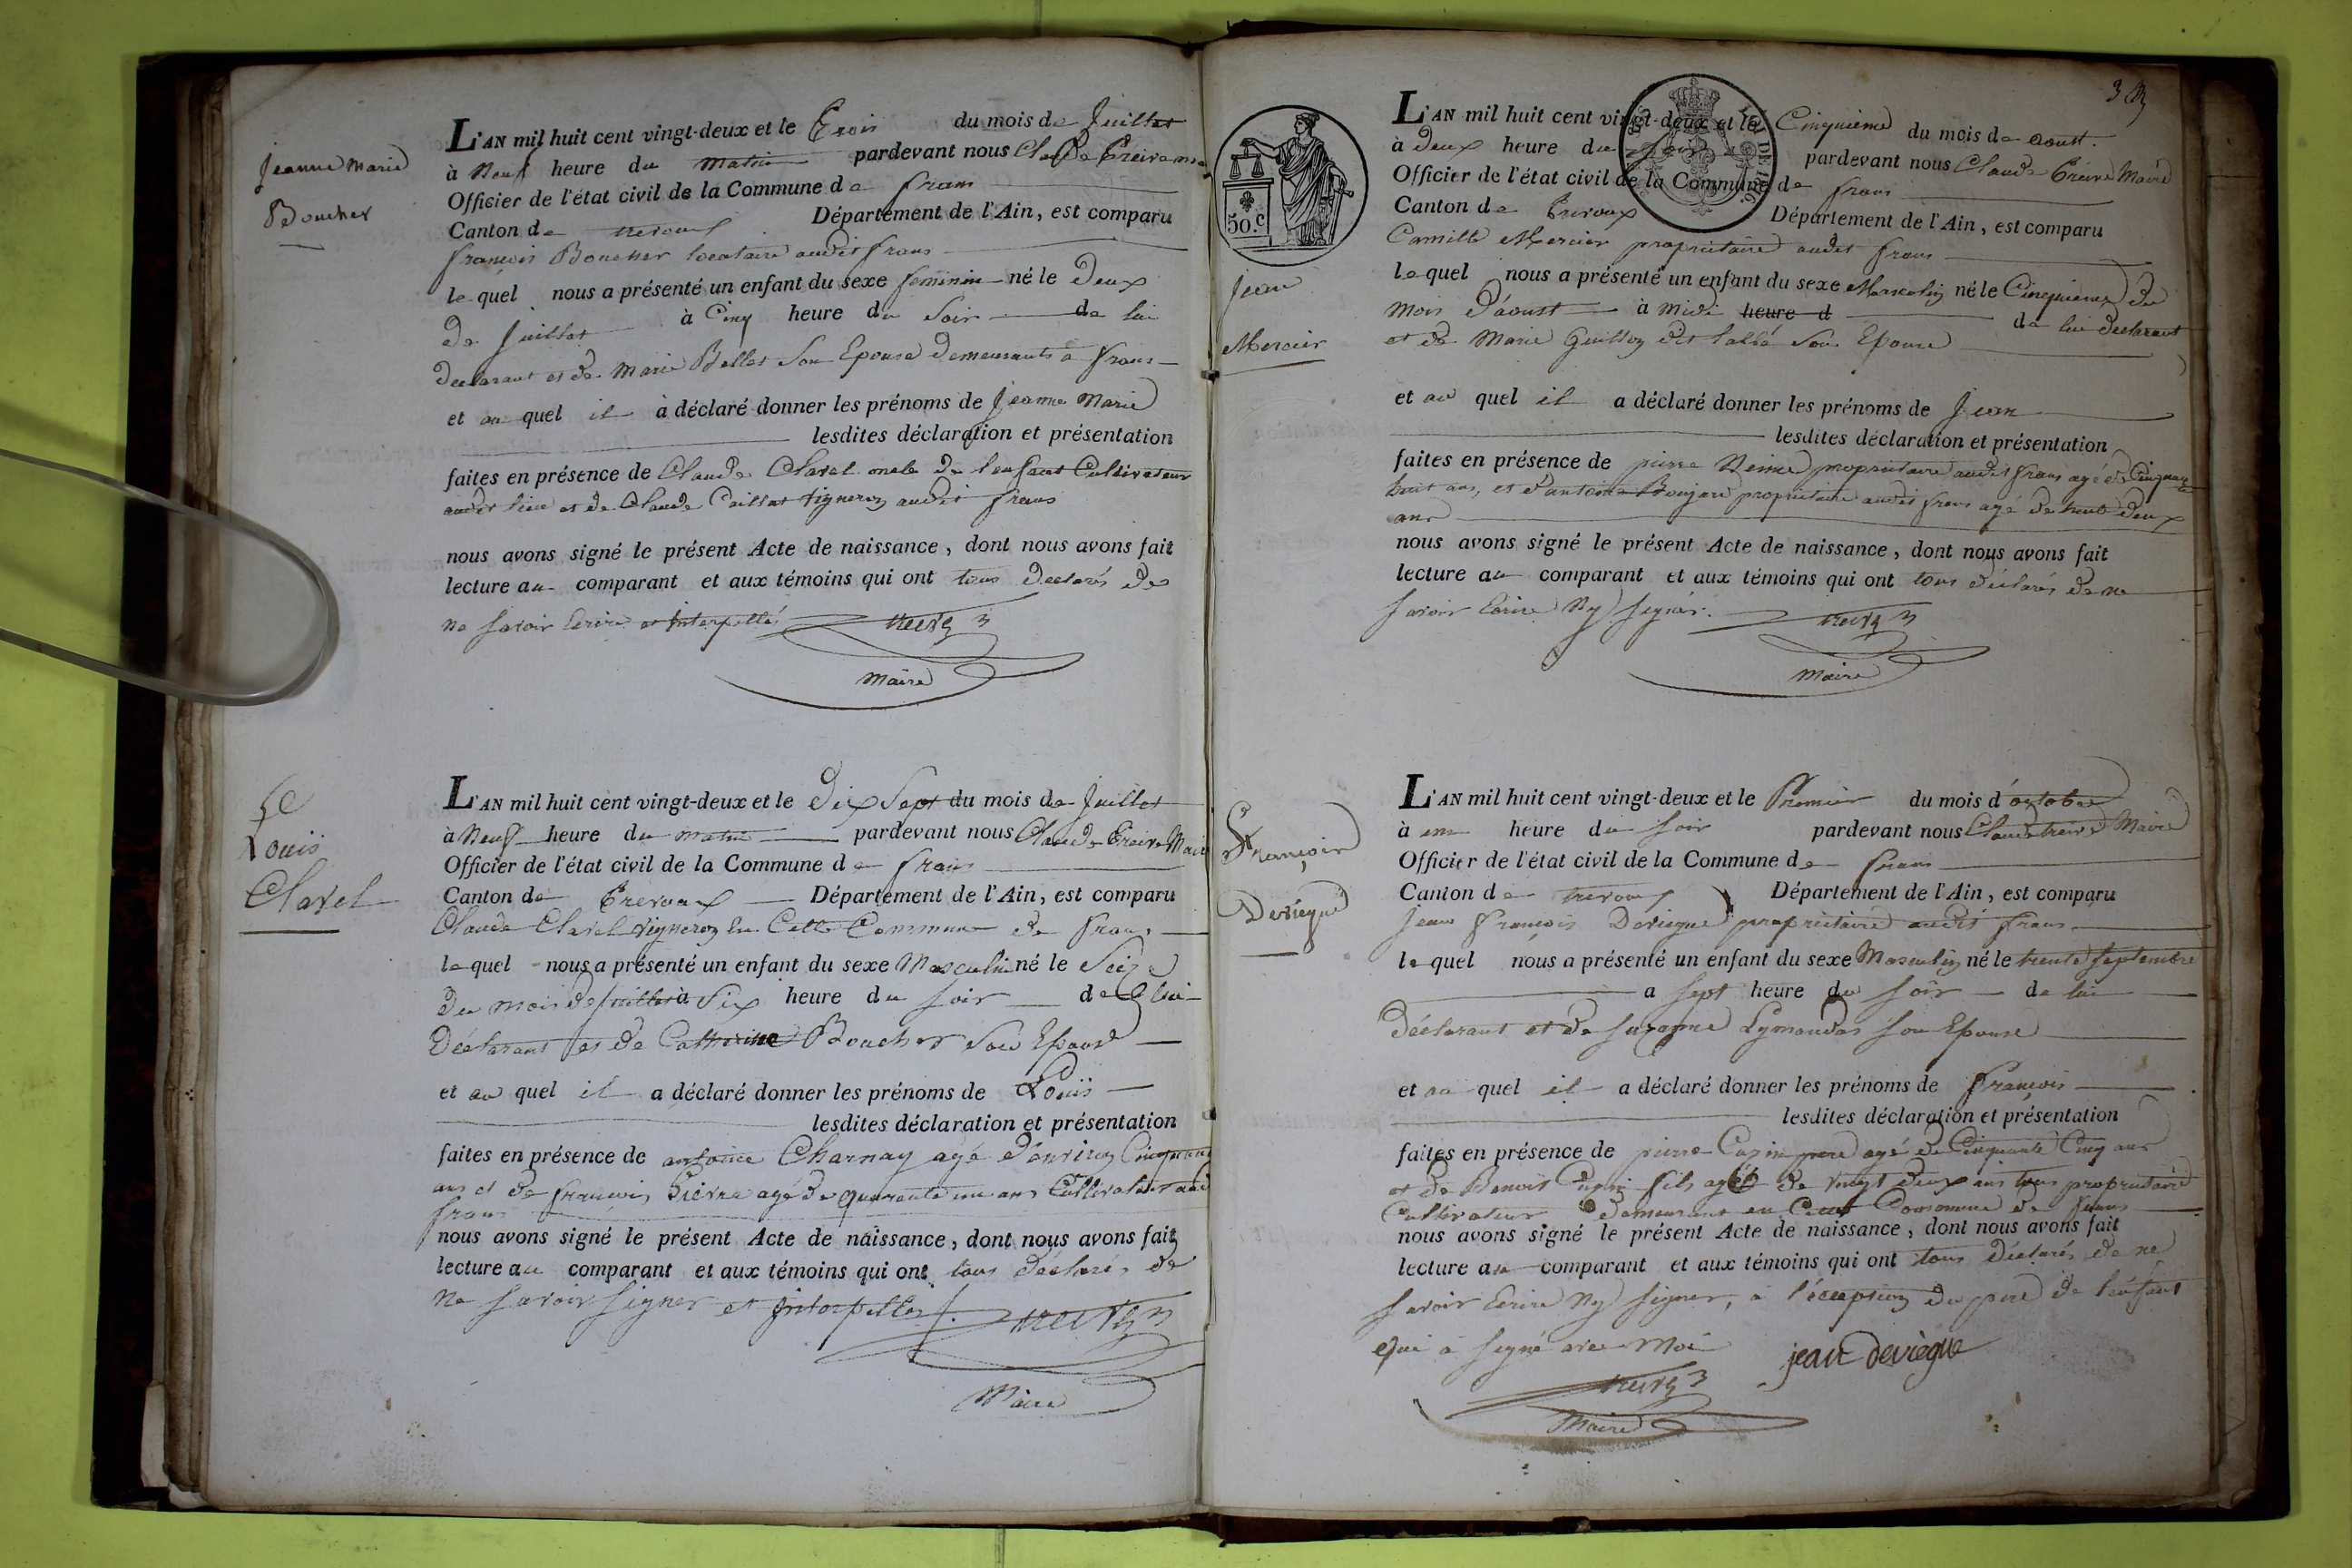 Jeanne Marie
Boucher
L'AN mil huit cent vingt-deux et le Trois du mois de Juillet
à Neuf heure du matin pardevant nous Claude Treive
Officier de l'état civil de la Commune de frans
Canton de trevoux Département de l'Ain, est comparu
françois Boucher locataire audit frans
lequel nous a présenté un enfant du sexe feminin né le Deux
De Juillet à Cinq heure du Soir de lui
declarant et de Marie Bellet Son Epouse demeurants à frans
et au quel il à déclaré donner les prénoms de Jeanne Marie
lesdites déclaration et présentation
faites en présence de Claude Clavel oncle de l'enfant Cultivateur
audit lieu et de Claude Caillat vigneron audit frans
nous avons signé le présent Acte de naissance, dont nous avons fait
lecture au comparant et aux témoins qui ont tous declarés de
ne savoir Ecrire et Interpellé treive
Maire
Louis
Clavel
L'AN mil huit cent vingt-deux et le Dix Sept du mois de Juillet
à Neuf heure du matin pardevant nous Claude Treive Maire
Officier de l'état civil de la Commune de frans
Canton de Trevoux Département de l'Ain, est comparu
Claude Clavel vigneron en Cette Commune de frans
lequel nous a présenté un enfant du sexe Masculin né le Seize
du mois de Juillet à Six heure du soir de lui
Déclarant et de Catherine Boucher son Epouse
et au quel il a déclaré donner les prénoms de Louis
lesdites déclaration et présentation
faites en présence de antoine Charnay agé d'environ Cinquante
ans et de francois agé de quarante un ans Cultivateur audit
frans
nous avons signé le présent Acte de naissance, dont nous avons fait
lecture au comparant et aux témoins qui ont tous déclarés de
Ne savoir signer et Interpellés treive
Maire
50.c
Jean
Mercier
L'AN mil huit cent vingt-deux et le Cinquieme du mois de aoust.
à Deux heure du soir pardevant nous Claude Treive Maire
Officier de l'état civil de la Commune de frans
Canton de Trevoux Département de l'Ain, est comparu
Camille Mercier proprietaire audit frans
lequel nous a présenté un enfant du sexe Masculin né le Cinquieme du
mois d'aoust à midi heure d de lui declarant
et de Marie Guillon dit labbé Son Epouse
et au quel il a déclaré donner les prénoms de Jean
lesdites déclaration et présentation
faites en présence de pierre proprietaire audit frans agé de Cinquante
huit ans, et d'antoine Boujard proprietaire audit frans agé de trente deux
ans
nous avons signé le présent Acte de naissance, dont nous avons fait
lecture au comparant et aux témoins qui ont tous déclarés de ne
savoir Ecrire Ny signer. treive
Maire
François
Deviegue
L'AN mil huit cent vingt-deux et le Premier du mois d'octobre
à une heure du soir pardevant nous Claude treive Maire
Officier de l'état civil de la Commune de frans
Canton de trevoux Département de l'Ain, est comparu
Jean François Deviegue proprietaire audit frans
lequel nous a présenté un enfant du sexe Masculin né le trente septembre
a sept heure du soir de lui
Déclarant et de suzanne Lymandas son Epouse
et au quel il a déclaré donner les prénoms de François
lesdites déclaration et présentation
faites en présence de pierre Cuzin pere agé de Cinquante Cinq ans
et de Benoit Cuzin fils agé de vingt deux ans tous proprietaire
Cultivateur demeurant en Cette Commune de frans
nous avons signé le présent Acte de naissance, dont nous avons fait
lecture au comparant et aux témoins qui ont tous Déclarés de ne
savoir Ecrire Ny signer, à l'éception du pere de l'enfant
Qui à signé avec Moi jean deviègue
treive
Maire